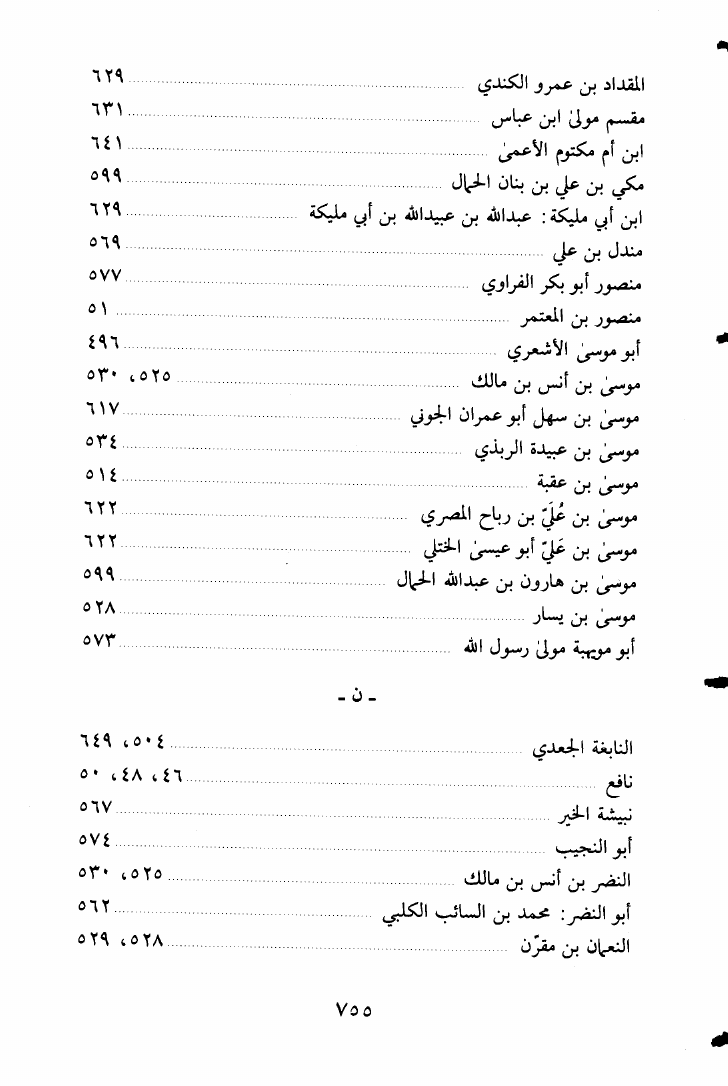 المقداد بن عمرو الكندي ........ ٦٢٩
مقسم مولىٰ ابن عباس ........ ٦٣١
ابن أم مكتوم الأعمىٰ ........ ٦٤١
مكي بن علي بن بنان الحمال ........ ٥٩٩
ابن أبي مليكة: عبدالله بن عبيدالله بن أبي مليكة ........ ٦٢٩
مندل بن علي ........ ٥٦٩
منصور أبو بكر الفراوي ........ ٥٧٧
منصور بن المعتمر ........ ٥١
أبو موسىٰ الأشعري ........ ٤٩٦
موسىٰ بن أنس بن مالك ........ ٥٢٥، ٥٣٠
موسىٰ بن سهل أبو عمران الجوني ........ ٦١٧
موسىٰ بن عبيدة الربذي ........ ٥٣٤
موسىٰ بن عقبة ........ ٥١٤
موسىٰ بن عُلَيّ بن رباح المصري ........ ٦٢٢
موسىٰ بن عَليّ أبو عيسىٰ الختلي ........ ٦٢٢
موسىٰ بن هارون بن عبدالله الحمال ........ ٥٩٩
موسىٰ بن يسار ........ ٥٢٨
أبو مويهبة مولىٰ رسول الله ........ ٥٧٣
- ن -
النابغة الجعدي ........ ٥٠٤، ٦٤٩
نافع ........ ٤٦، ٤٨، ٥٠
نبيشة الخير ........ ٥٦٧
أبو النجيب ........ ٥٧٤
النضر بن أنس بن مالك ........ ٥٢٥، ٥٣٠
أبو النضر: محمد بن السائب الكلبي ........ ٥٦٢
النعمان بن مقرّن ........ ٥٢٨، ٥٢٩
٧٥٥